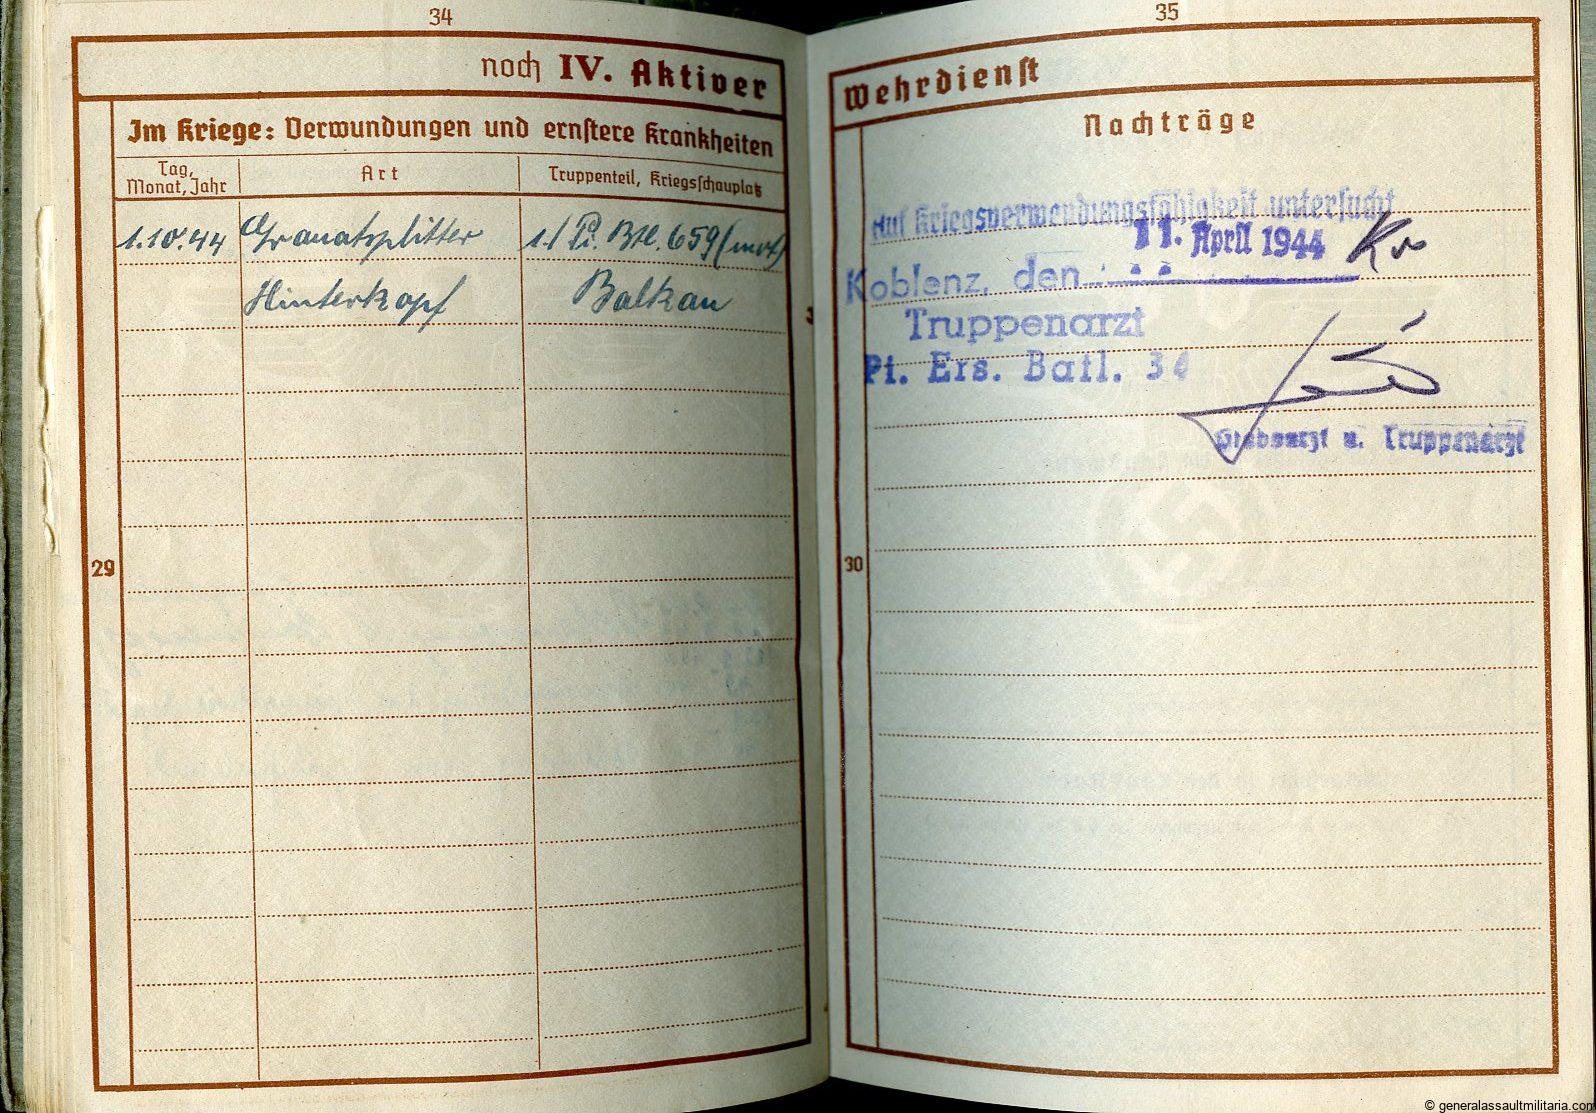 34
noch IV. Aktiver
Im Kriege: Verwundungen und ernstere Krankheiten
Tag, Monat, Jahr
Art
Truppenteil, Kriegsschauplatz
1.10.44 Granatsplitter 1./Pi. Btl. 659 (mot)
Hinterkopf Balkan
29
35
Wehrdienst
Nachträge
Auf Kriegsverwendungsfähigkeit untersucht
11. April 1944 Kv
Koblenz, den
Truppenarzt
Pi. Ers. Batl. 34
Stabsarzt u. Truppenarzt
30
© generalassaultmilitaria.com